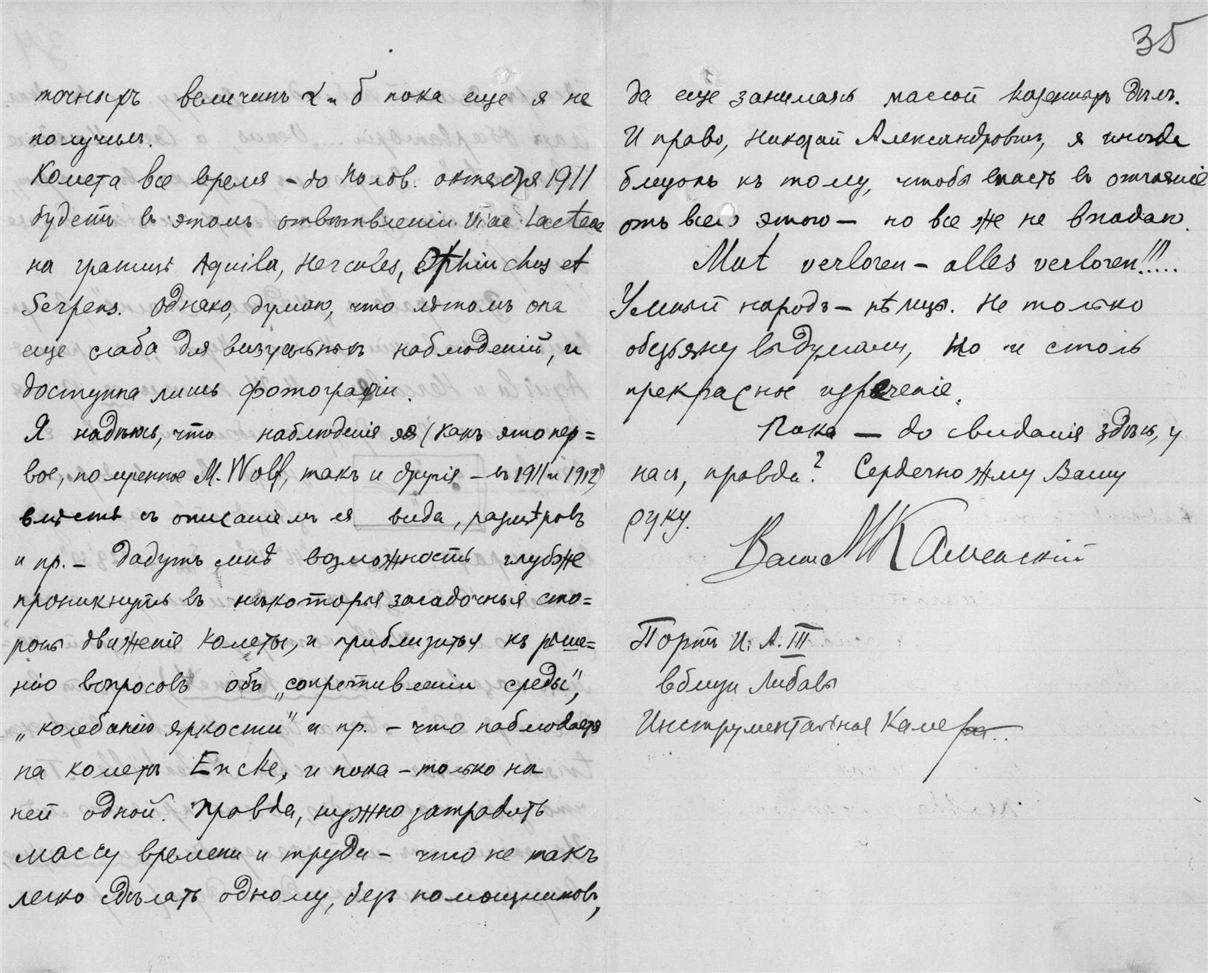 35
точныхъ величинъ α и δ пока еще я не
получилъ.
Комета все время – до полов. октября 1911
будетъ въ этомъ отвѣтвленіи Viae Lacteae
на границѣ Aquila, Hercules, Ophiuchus et
Serpens. Однако, думаю, что лѣтомъ она
еще слаба для визуальныхъ наблюденій, и
доступна лишь фотографіи.
Я надѣюсь, что наблюденія ея (какъ это пер=
вое, полученное M. Wolf, такъ и другія – въ 1911 и 1912)
вмѣстѣ съ описаніемъ ея вида, размѣровъ
и пр. – дадутъ мнѣ возможность глубже
проникнуть въ нѣкоторыя загадочныя сто=
роны движенія кометы, и приблизиться къ рѣше=
нію вопросовъ объ „сопротивленіи среды",
„колебанію яркости" и пр. – что наблюдается
на кометѣ Encke, и пока – только на
ней одной. Правда, нужно затратить
массу времени и труда – что не такъ
легко сдѣлать одному, безъ помощниковъ,
да еще занимаясь массой казенныхъ дѣлъ.
И право, Николай Александровичъ, я иногда
близокъ къ тому, чтобы впасть въ отчаяніе
отъ всего этого – но все же не впадаю.
Mut verloren – alles verloren!!!...
Умный народъ – нѣмцы. Не только
обезьяну выдумали, но и столь
прекрасное изреченіе.
Пока – до свиданія здѣсь, у
насъ, правда? Сердечно жму Вашу
руку.
Вашъ МКаменскій
Портъ И. А. III
вблизи Либавы
Инструментальная Камера..